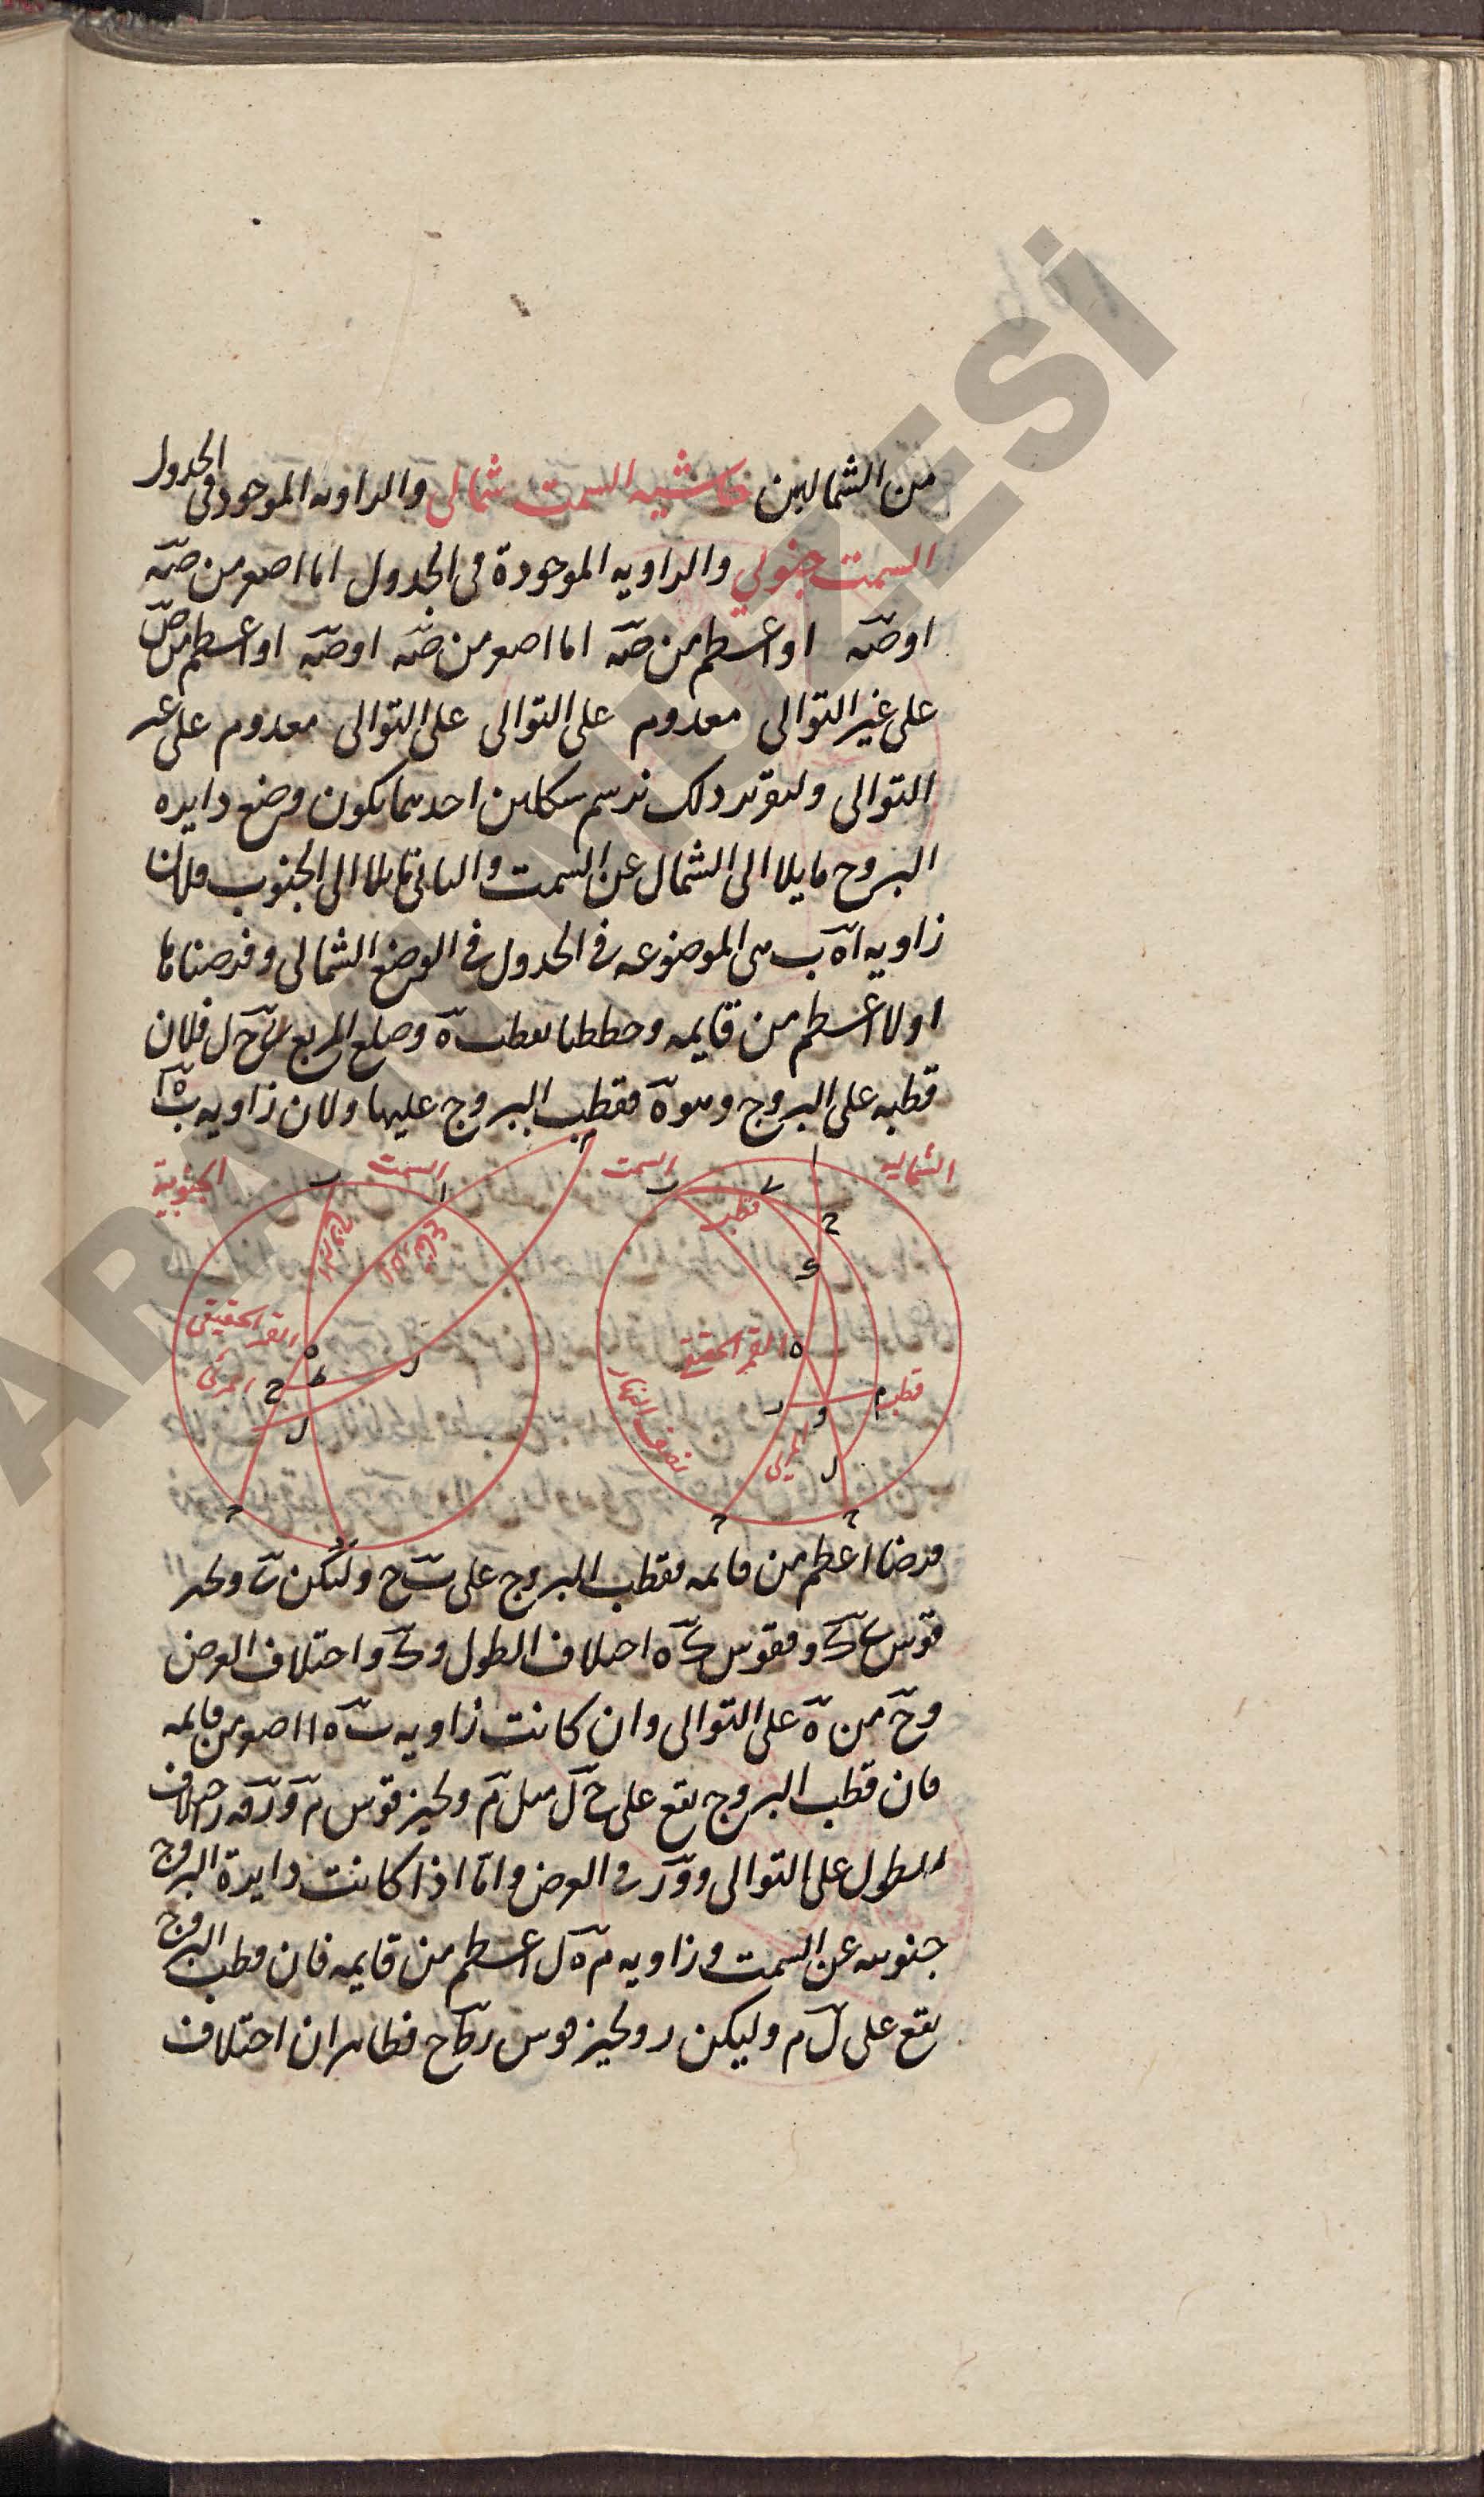 من الشماليين حاشيه السمت شمالى والزاويه الموجود فى الجدول
السمت جنوبي والزاويه الموجودة فى الجدول اما اصغر من صه
او صه او اعظم من صه اما اصغر من صه او صه او اعظم من ص
على غير التوالى معدوم على التوالى على التوالى معدوم على غير
التوالى ولنقرير ذلك نرسم شكلين احدهما يكون وضع دايره
البروج مايلا الى الشمال عن السمت والثانى مايلا الى الجنوب فلان
زاويه اه ب هى الموضوعه فى الجدول فى الوضع الشمالى وفرضناها
اولا اعظم من قايمه وخططنا بقطب ه وضلع المربع قوس ح ل فلان
قطبه على البروج وهو ه فقطب البروج عليها ولان زاويه ب ه ا
الشماليه
السمت
قطب
القمر الحقيقى
قطب
نصف النهار
المرئى
الجنوبية
السمت
القمر الحقيقى
المرئى
فرضنا اعظم من قايمه فقطب البروج على ح وليكن ونجيز
قوس ك و فقوس ك ه اختلاف الطول و ك و اختلاف العرض
و ح من ه على التوالى وان كانت زاويه ب ه ا اصغر من قايمه
فان قطب البروج يقع على ح ل مثل م ونجيز قوس م و ر فه ر اختلاف
الطول على التوالى و و ر فى العرض واما اذا كانت دايرة البروج
جنوبيه عن السمت وزاويه م ه ل اعظم من قايمه فان قطب البروج
يقع على ل م وليكن ر ونجيز قوس ر ط ح فظاهر ان اختلاف
ARA MÜZESİ